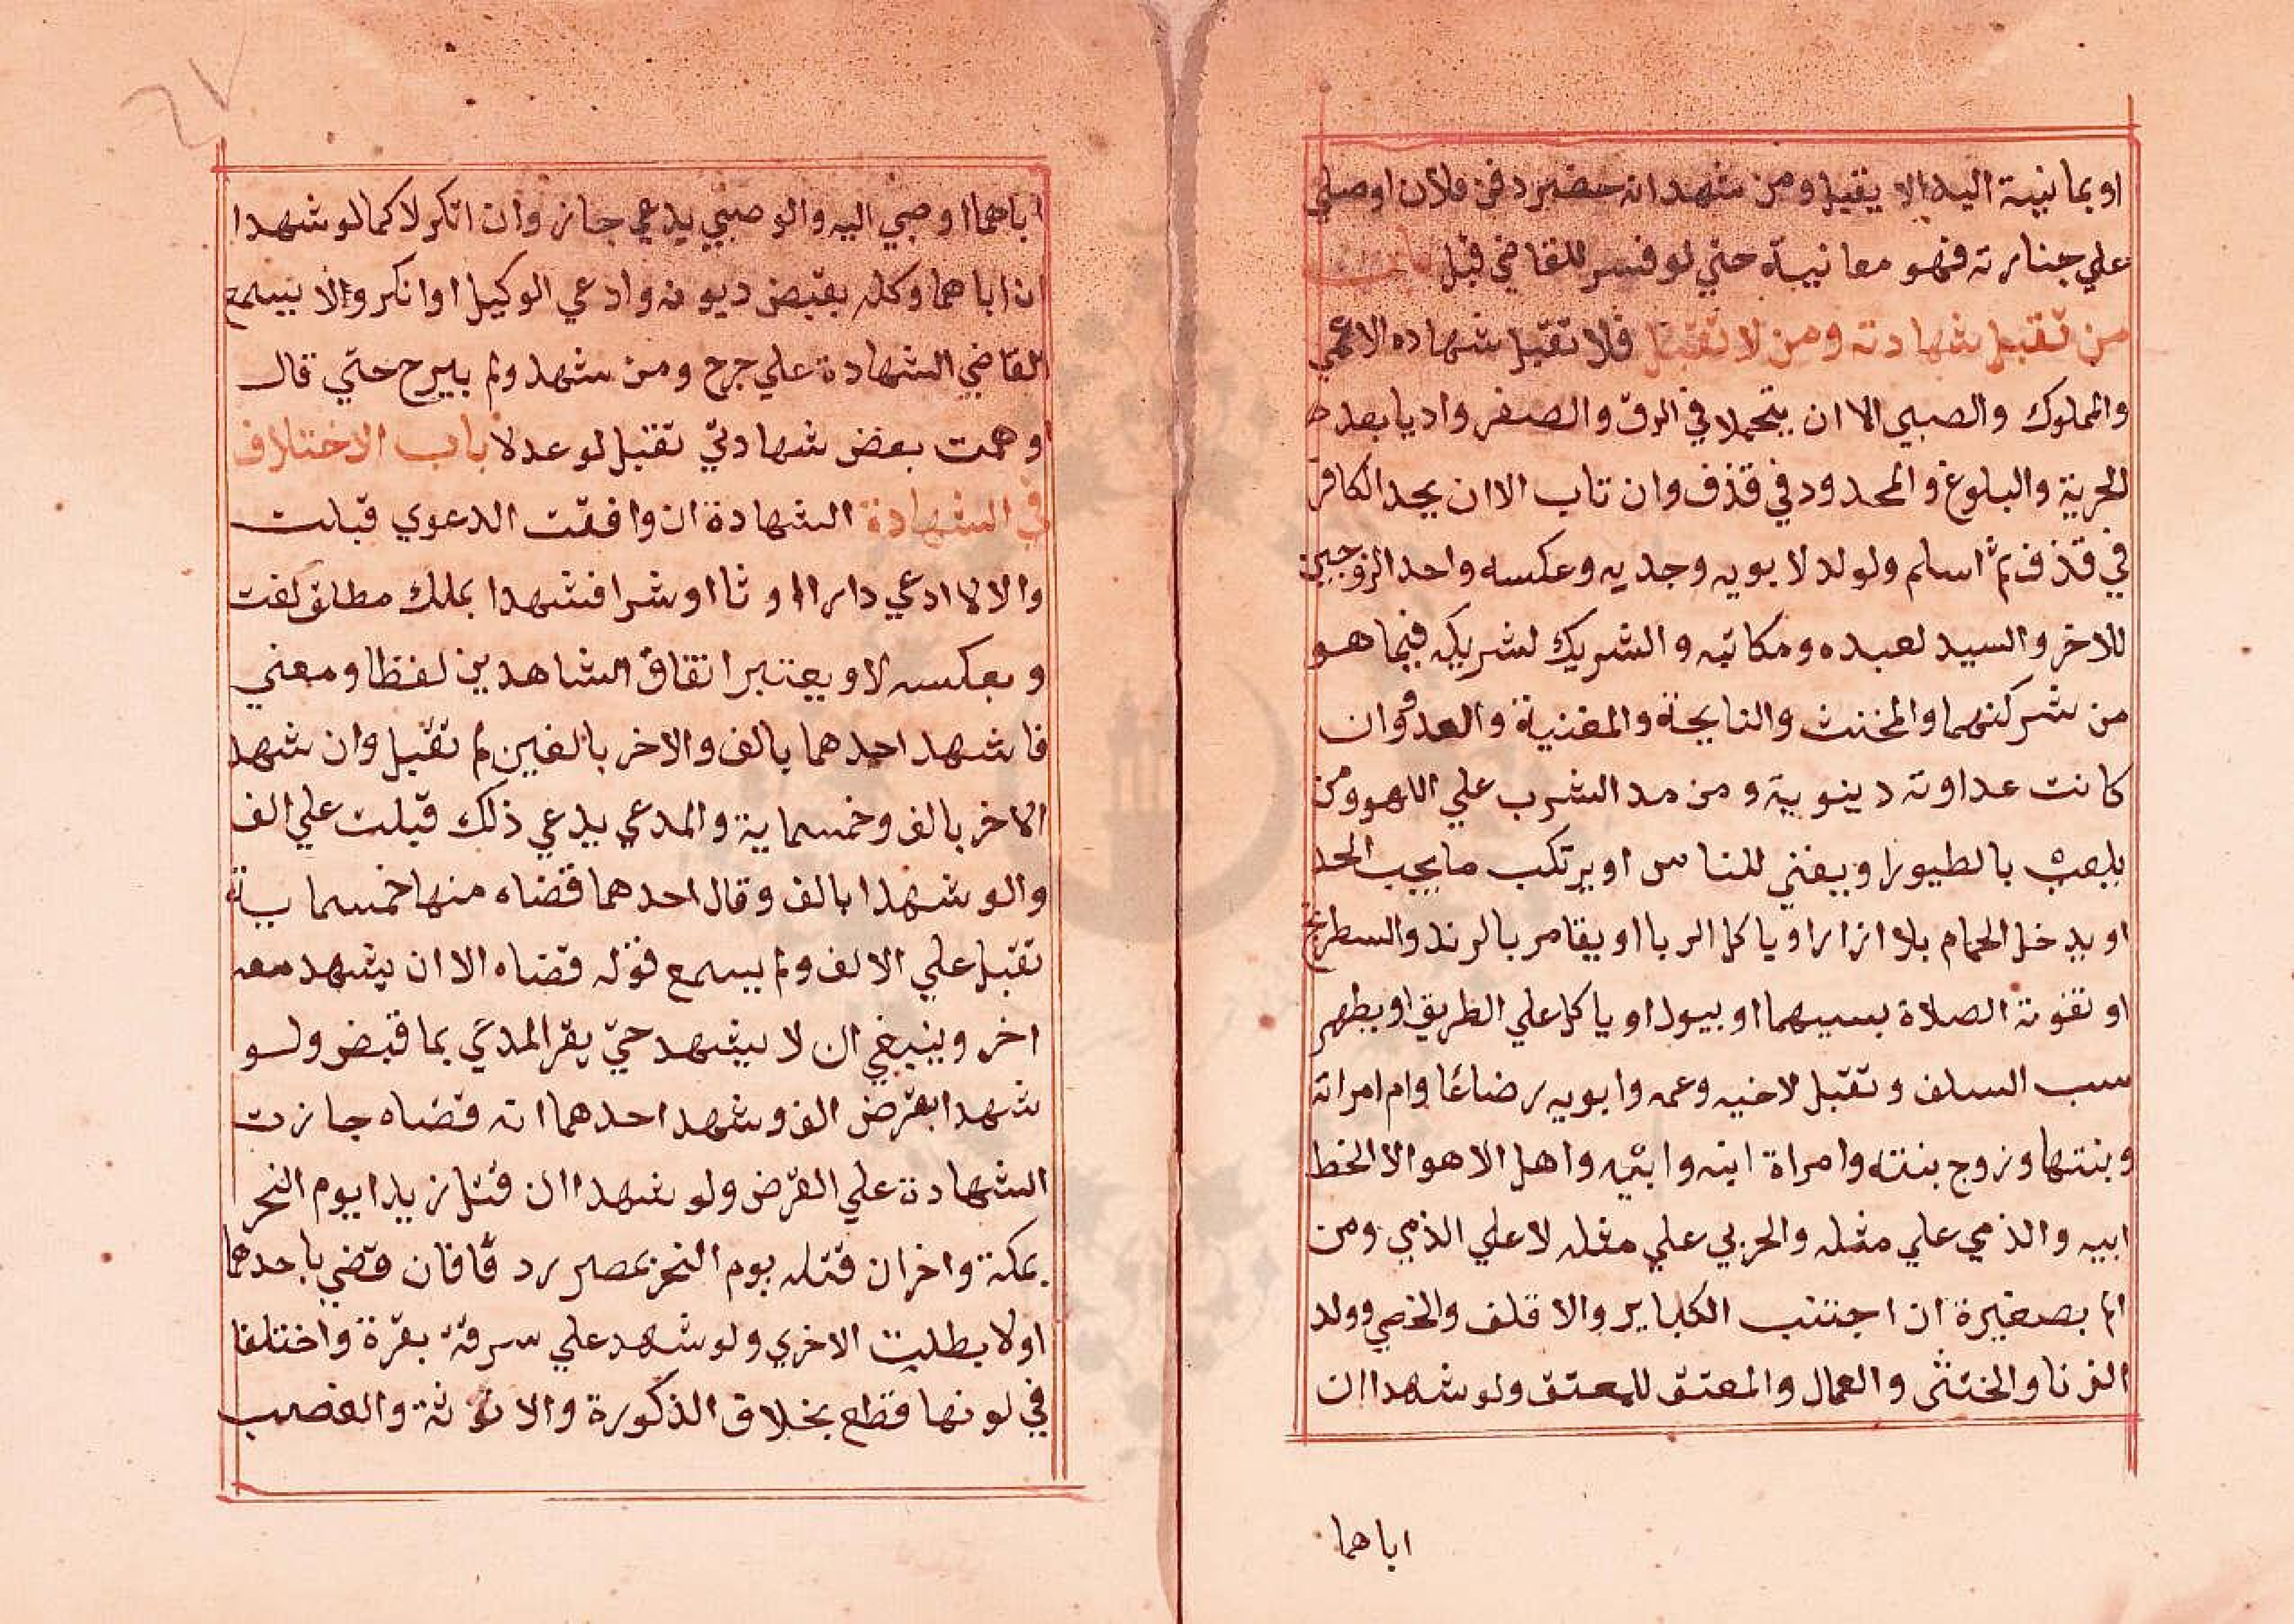 او بمانية اليد الا يقبل ومن شهد انه حضر دفن فلان اوصلي
علي جنازته فهو معانية حتي لو فسر للقاضي قبل باب
من تقبل شهادته ومن لا تقبل فلا تقبل شهاده الاعمي
والمملوك والصبي الا ان يتحملا في الرق والصغر واديا بعد
الحرية والبلوغ والمحدود في قذف وان تاب الا ان يحد الكافر
في قذف ثم اسلم ولولد لابويه وجديه وعكسه واحد الزوجين
للاخر والسيد لعبده ومكاتبه والشريك لشريكه فيما هو
من شركتهما والمخنث والنايحة والمغنية والعدو وان
كانت عداوته دينوية ومن مد الشرب علي اللهو ومن
يلعب بالطيور او يغني للناس او يرتكب ما يجب الحد
او يدخل الحمام بلا ازار او ياكل الربا او يقامر بالرند والسطرنج
او تفوته الصلاة بسببهما او يبول او ياكل علي الطريق او يظهر
سب السلف وتقبل لاخيه وعمه وابويه رضاعا وام امراته
وبنتها وزوج بنته وامراة ابنه وابيه واهل الاهوا الا الخط
ابيه والذمي علي مثله والحربي علي مثله لا علي الذمي ومن
الم بصغيرة ان اجتنب الكباير والاقلف والخصي وولد
الزنا والخنثي والعمال والمعتق للمعتق ولو شهدا ان
اباهما
اباهما اوصي اليه والوصي يدعي جاز وان انكر لا كما لو شهدا
ان اباهما وكله بقبض ديونه وادعي الوكيل او انكر والا يسمع
القاضي الشهادة علي جرح ومن شهد ولم يبرح حتي قال
وهمت بعض شهادتي تقبل لو عدلا باب الاختلاف
في الشهادة الشهادة ان وافقت الدعوي قبلت
والا لا ادعي دارا اوثا او شرا فشهدا بملك مطلق لغت
وبعكسه لا ويعتبر اتفاق الشاهدين لفظا ومعني
فا شهد احدهما بالف والاخر بالفين لم تقبل وان شهد
الاخر بالف وخمسماية والمدعي يدعي ذلك قبلت علي الف
والو شهدا بالف وقال احدهما قضاه منها خمسماية
تقبل علي الالف ولم يسمع قوله قضاه الا ان يشهد معه
اخر وينبغي ان لا يشهد حتي يقر المدعي بما قبض ولو
شهدا بقرض الف وشهد احدهما انه قضاه جازت
الشهادة علي القرض ولو شهدا ان قتل زيدا يوم النحر
بمكة واخران قتله يوم النحر بمصر رد قافان قضي باحدهما
اولا بطلت الاخري ولو شهد علي سرقة بقرة واختلفا
في لونها قطع بخلاف الذكورة والانوثة والغصب